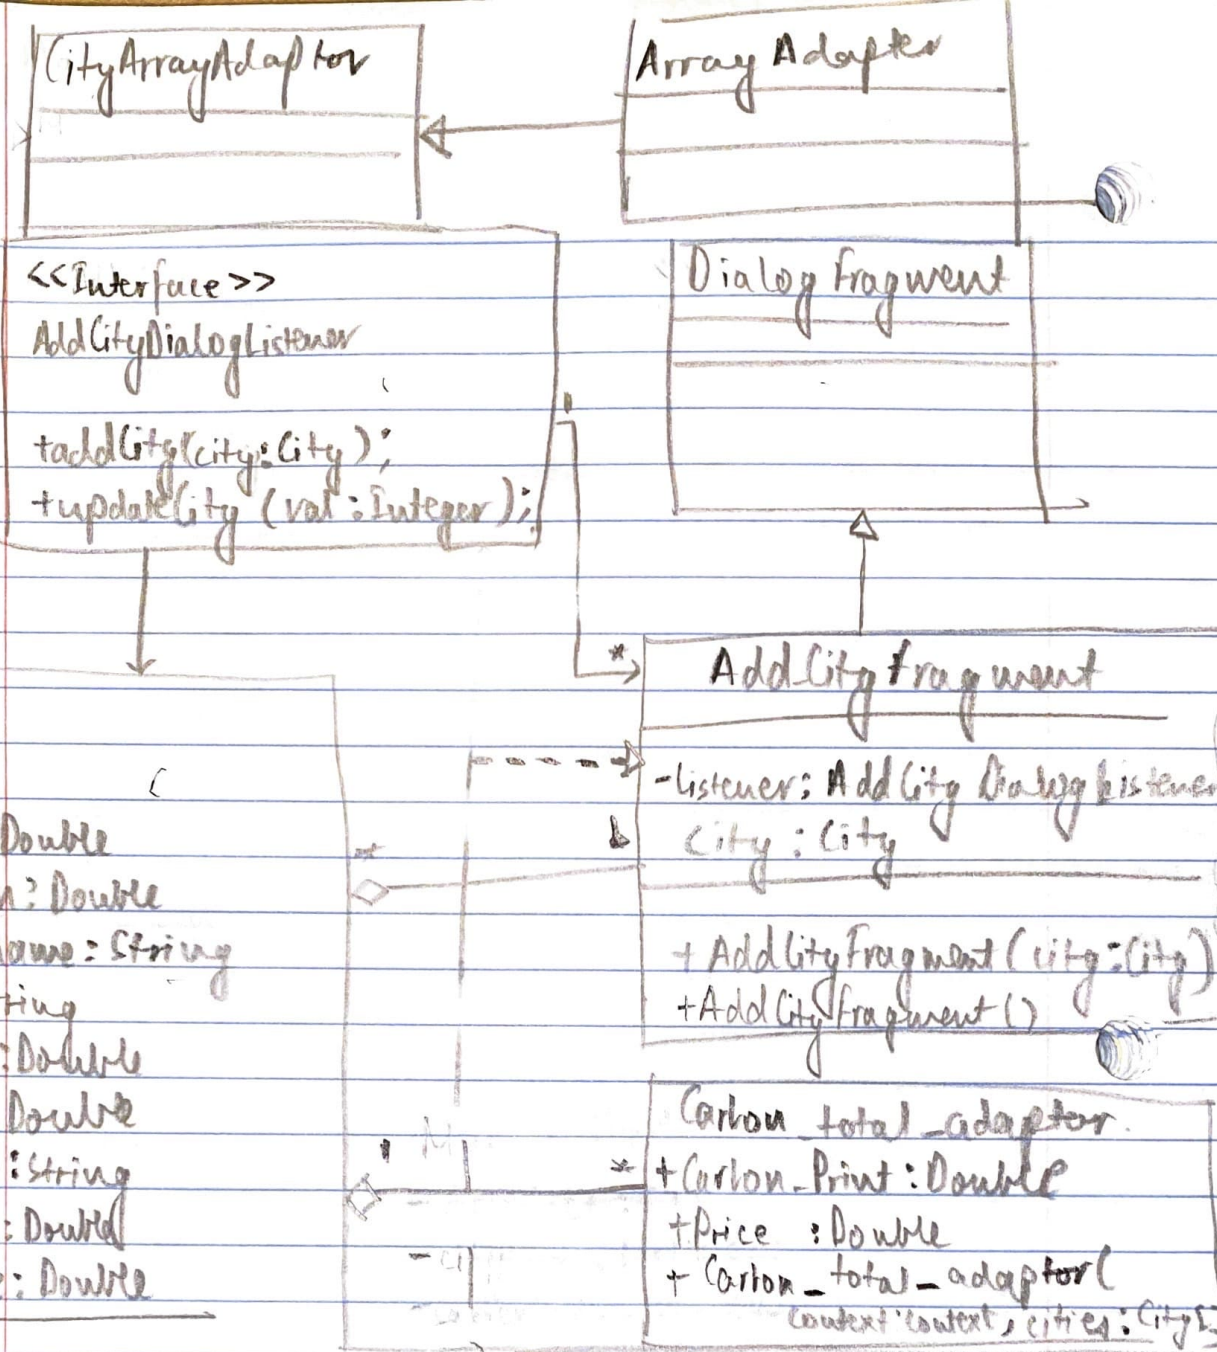 CityArrayAdaptor
ArrayAdapter
<<Interface>>
AddCityDialogListener
+addCity(city:City);
+updateCity (val:Integer);
DialogFragment
1
*
AddCityFragment
-listener: AddCityDialogListener
City : City
+ AddCityFragment(city:City)
+AddCityFragment()
*
1
Double
n: Double
ame: String
ring
: Double
Double
: String
: Double
: Double
1
*
Carbon_total_adaptor
+Carbon_Print : Double
+Price : Double
+ Carbon_total_adaptor(
context:context, cities: City[